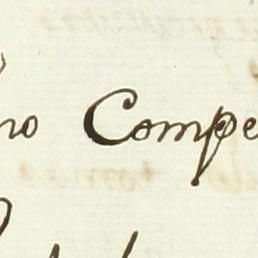 no Compe